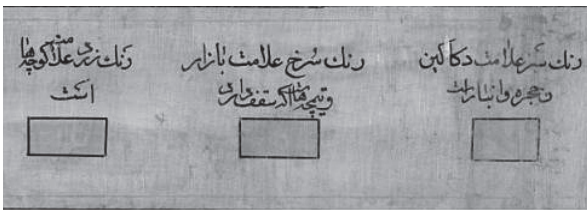 رنك سبز علامت دكاكين
وحجره وانبار است
رنك سرخ علامت بازار
وتيمچه هائيكه سقف دارد
رنك زرد علامت كوچه ها
است